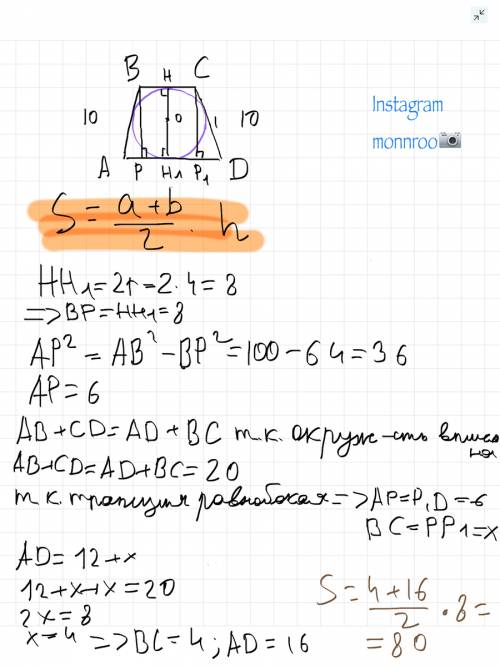 B H C
10 O 10
A P H₁ P₁ D
Instagram
monnroo
S = a+b/2 · h
HH₁=2r=2·4=8
=>BP=HH₁=8
AP²=AB²-BP²=100-64=36
AP=6
AB+CD=AD+BC т.к. окруж-сть вписа
на
AB+CD=AD+BC=20
т.к. трапеция равнобокая=>AP=P₁D=6
BC=PP1=x
AD=12+x
12+x+x=20
2x=8
x=4 =>BC=4;AD=16
S=4+16/2·8=
=80